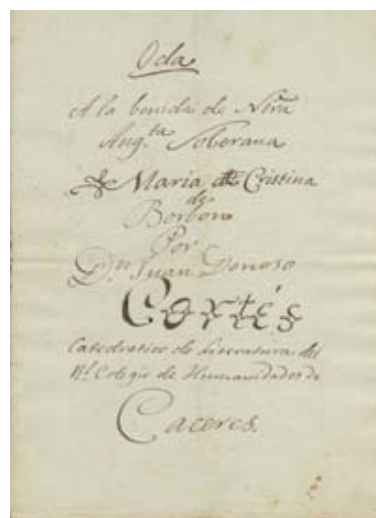 Oda
A la benida de Ntra
Aug.ta Soberana
D.ª Maria Cristina
de
Borbon
Por
D.n Juan Donoso
Cortés
Catedratico de Literatura del
Rl. Colegio de Humanidades de
Caceres.